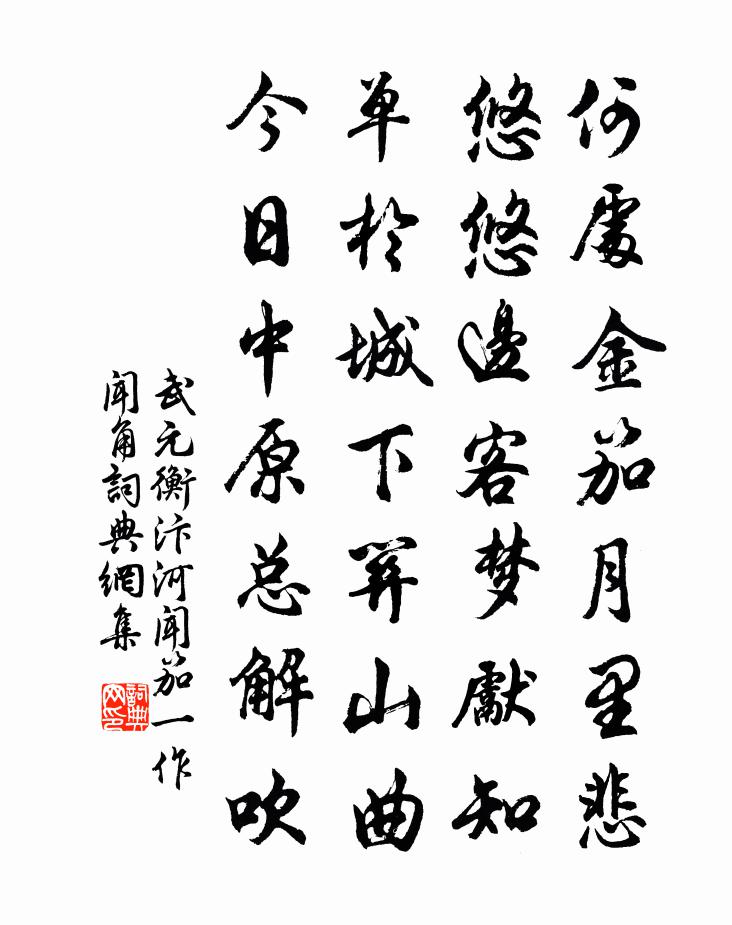 何處金笳月里悲
悠悠邊客梦獻知
单於城下关山曲
今日中原总解吹
武元衡汴河聞笳一作
聞角詞典網集
詞典网印